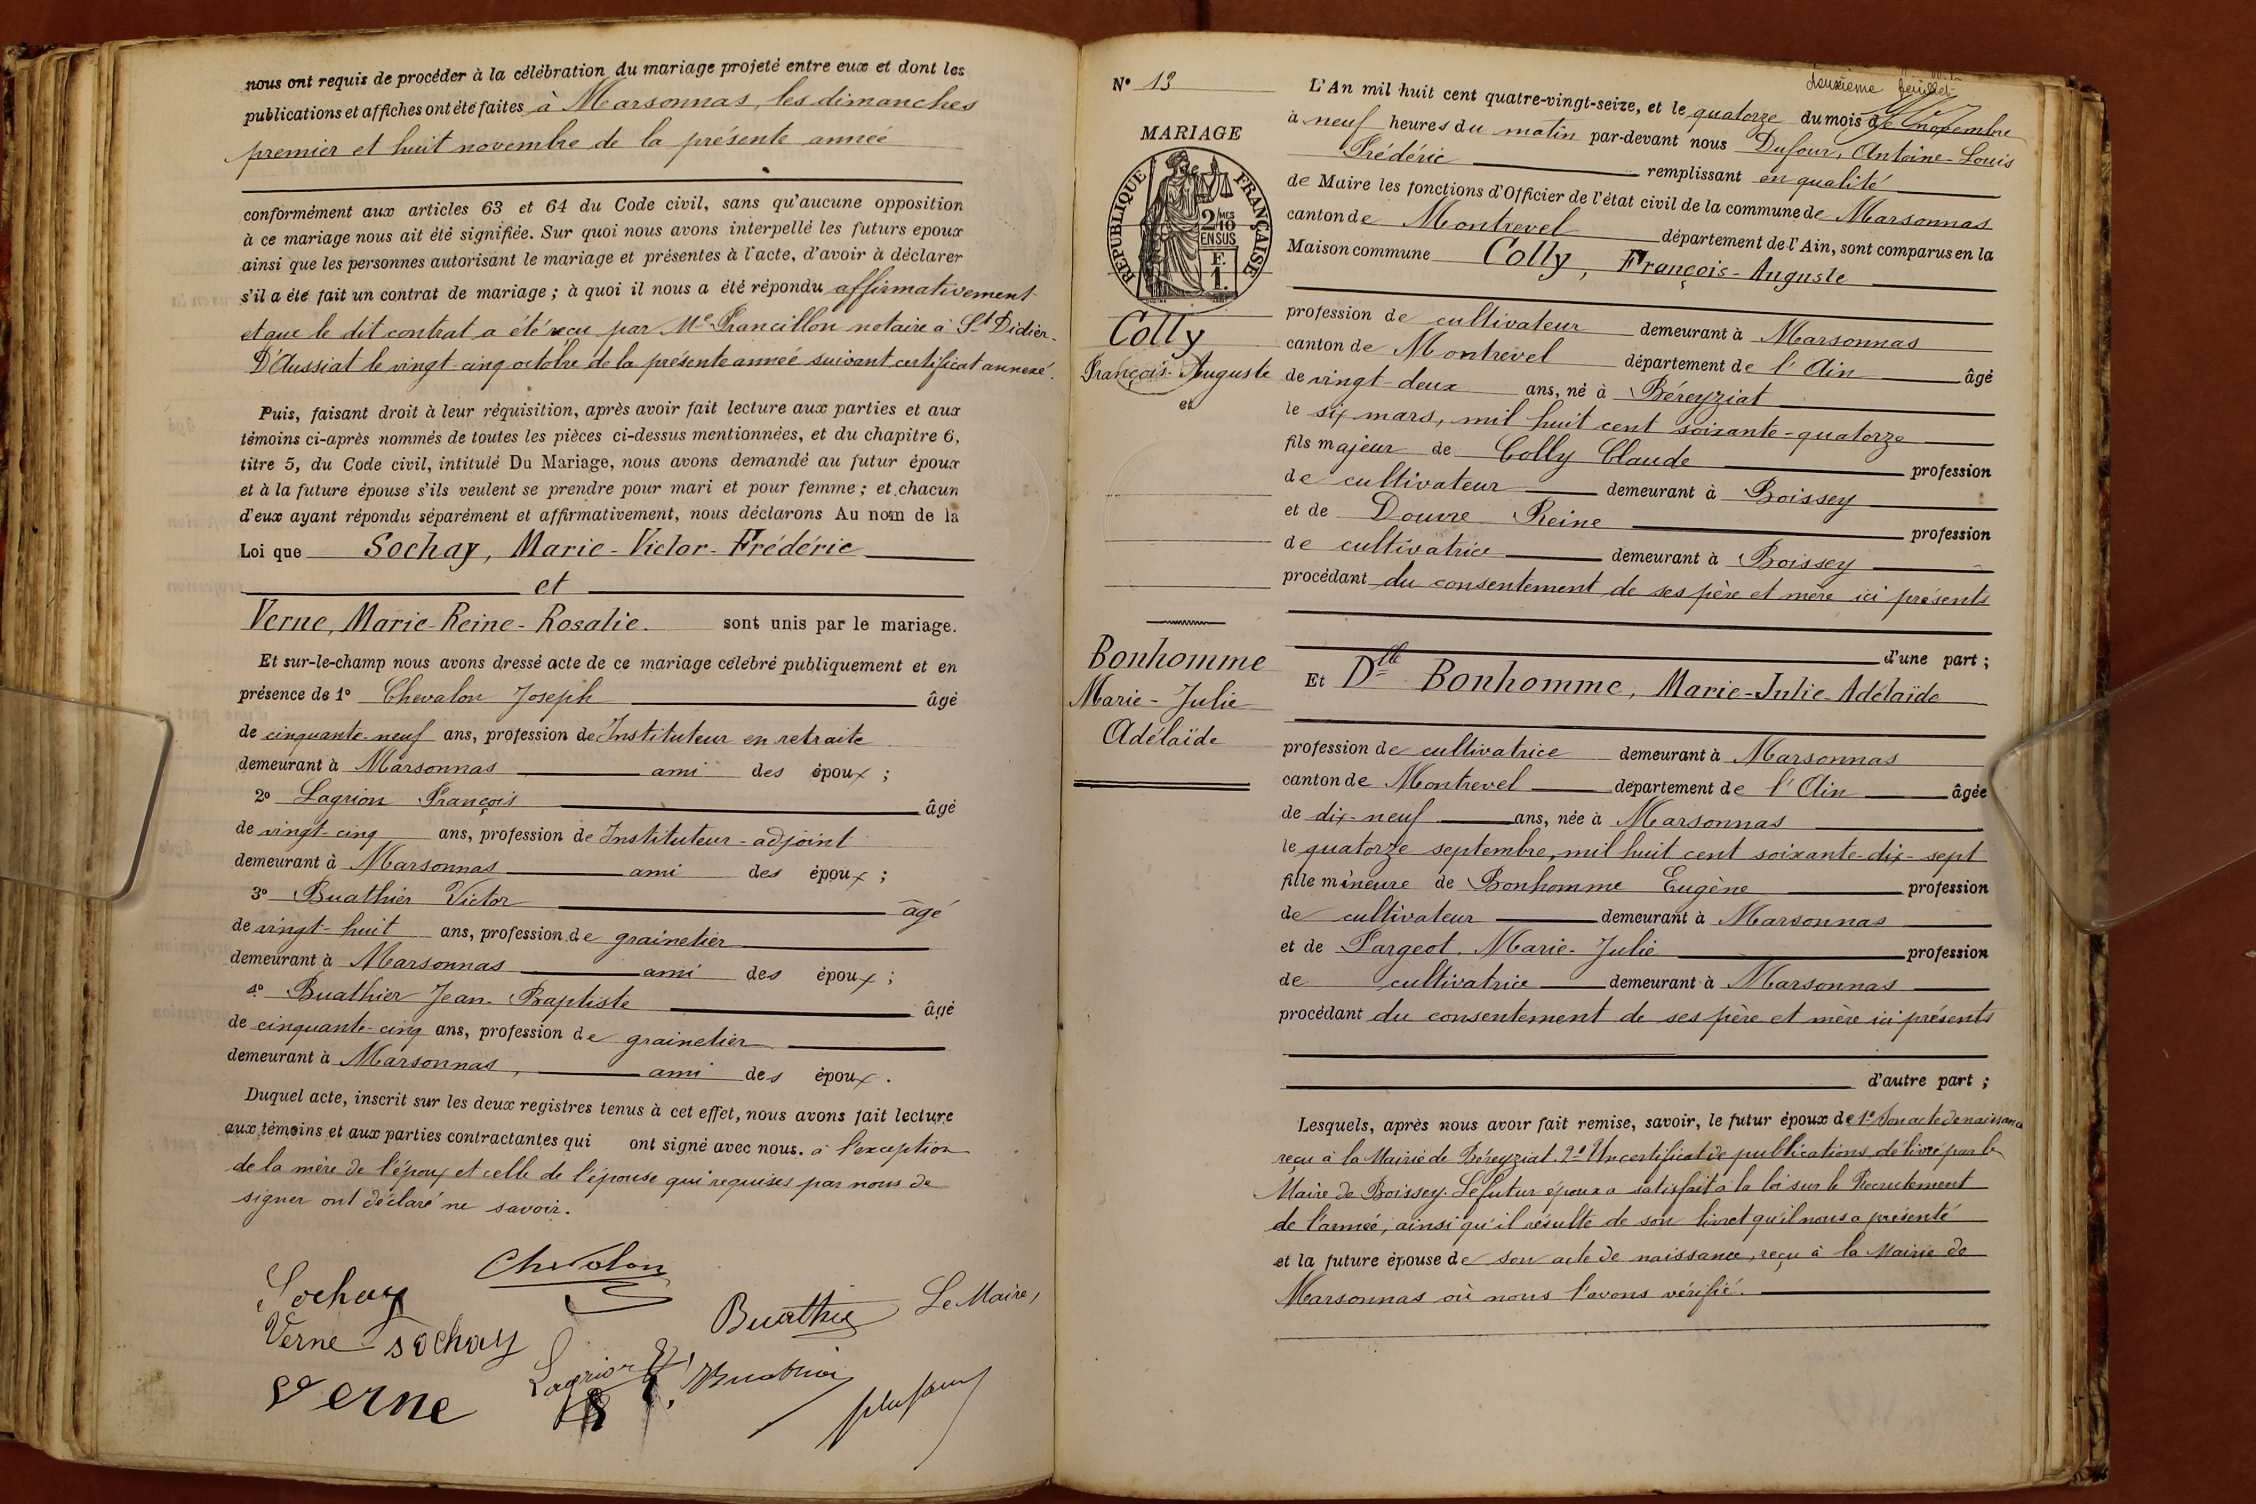 nous ont requis de procéder à la célébration du mariage projeté entre eux et dont les
publications et affiches ont été faites à Marsonnas, les dimanches
premier et huit novembre de la présente année
conformément aux articles 63 et 64 du Code civil, sans qu'aucune opposition
à ce mariage nous ait été signifiée. Sur quoi nous avons interpellé les futurs epoux
ainsi que les personnes autorisant le mariage et présentes à l'acte, d'avoir à déclarer
s'il a été fait un contrat de mariage ; à quoi il nous a été répondu affirmativement
et que le dit contrat a été reçu par Me Francillon notaire à St Didier-
D'Aussiat le vingt-cinq octobre de la présente année suivant certificat annexé.
Puis, faisant droit à leur réquisition, après avoir fait lecture aux parties et aux
témoins ci-après nommés de toutes les pièces ci-dessus mentionnées, et du chapitre 6,
titre 5, du Code civil, intitulé Du Mariage, nous avons demandé au futur époux
et à la future épouse s'ils veulent se prendre pour mari et pour femme ; et chacun
d'eux ayant répondu séparément et affirmativement, nous déclarons Au nom de la
Loi que Sochay, Marie-Victor-Frédéric
et
Verne, Marie-Reine-Rosalie. sont unis par le mariage.
Et sur-le-champ nous avons dressé acte de ce mariage célébré publiquement et en
présence de 1° Chevalon Joseph âgé
de cinquante-neuf ans, profession de Instituteur en retraite
demeurant à Marsonnas ami des époux ;
2° Lagrion François âgé
de vingt-cinq ans, profession de Instituteur-adjoint
demeurant à Marsonnas ami des époux ;
3° Buathier Victor âgé
de vingt-huit ans, profession de grainetier
demeurant à Marsonnas ami des époux ;
4° Buathier Jean-Baptiste âgé
de cinquante-cinq ans, profession de grainetier
demeurant à Marsonnas, ami des époux.
Duquel acte, inscrit sur les deux registres tenus à cet effet, nous avons fait lecture
aux témoins et aux parties contractantes qui ont signé avec nous. à l'exception
de la mère de l'époux et celle de l'épouse qui requises par nous de
signer ont déclaré ne savoir.
Sochay
Chevalon
Verne Sochay
Buathier
Le Maire,
Lagrion
Buathier
Verne
Dufour
N° 13
MARIAGE
RÉPUBLIQUE FRANÇAISE
2/10 MES
EN SUS
F.
1.
Colly
François-Auguste
et
Bonhomme
Marie-Julie
Adélaïde
deuxième feuillet
L'An mil huit cent quatre-vingt-seize, et le quatorze du mois de novembre
à neuf heures du matin par-devant nous Dufour, Antoine-Louis
Frédéric remplissant en qualité
de Maire les fonctions d'Officier de l'état civil de la commune de Marsonnas
canton de Montrevel département de l'Ain, sont comparus en la
Maison commune Colly, François-Auguste
profession de cultivateur demeurant à Marsonnas
canton de Montrevel département de l'Ain âgé
de vingt-deux ans, né à Béreyziat
le six mars, mil huit cent soixante-quatorze
fils majeur de Colly Claude profession
de cultivateur demeurant à Boissey
et de Douvre Reine profession
de cultivatrice demeurant à Boissey
procédant du consentement de ses père et mère ici présents
d'une part ;
Et Dlle Bonhomme, Marie-Julie-Adélaïde
profession de cultivatrice demeurant à Marsonnas
canton de Montrevel département de l'Ain âgée
de dix-neuf ans, née à Marsonnas
le quatorze septembre, mil huit cent soixante-dix-sept
fille mineure de Bonhomme Eugène profession
de cultivateur demeurant à Marsonnas
et de Pargeot, Marie-Julie profession
de cultivatrice demeurant à Marsonnas
procédant du consentement de ses père et mère ici présents
d'autre part ;
Lesquels, après nous avoir fait remise, savoir, le futur époux de 1° Son acte de naissance
reçu à la Mairie de Béreyziat. 2° Un certificat de publications délivré par le
Maire de Boissey. Le futur époux a satisfait à la loi sur le Recrutement
de l'armée, ainsi qu'il résulte de son livret qu'il nous a présenté
et la future épouse de son acte de naissance, reçu à la Mairie de
Marsonnas où nous l'avons vérifié.